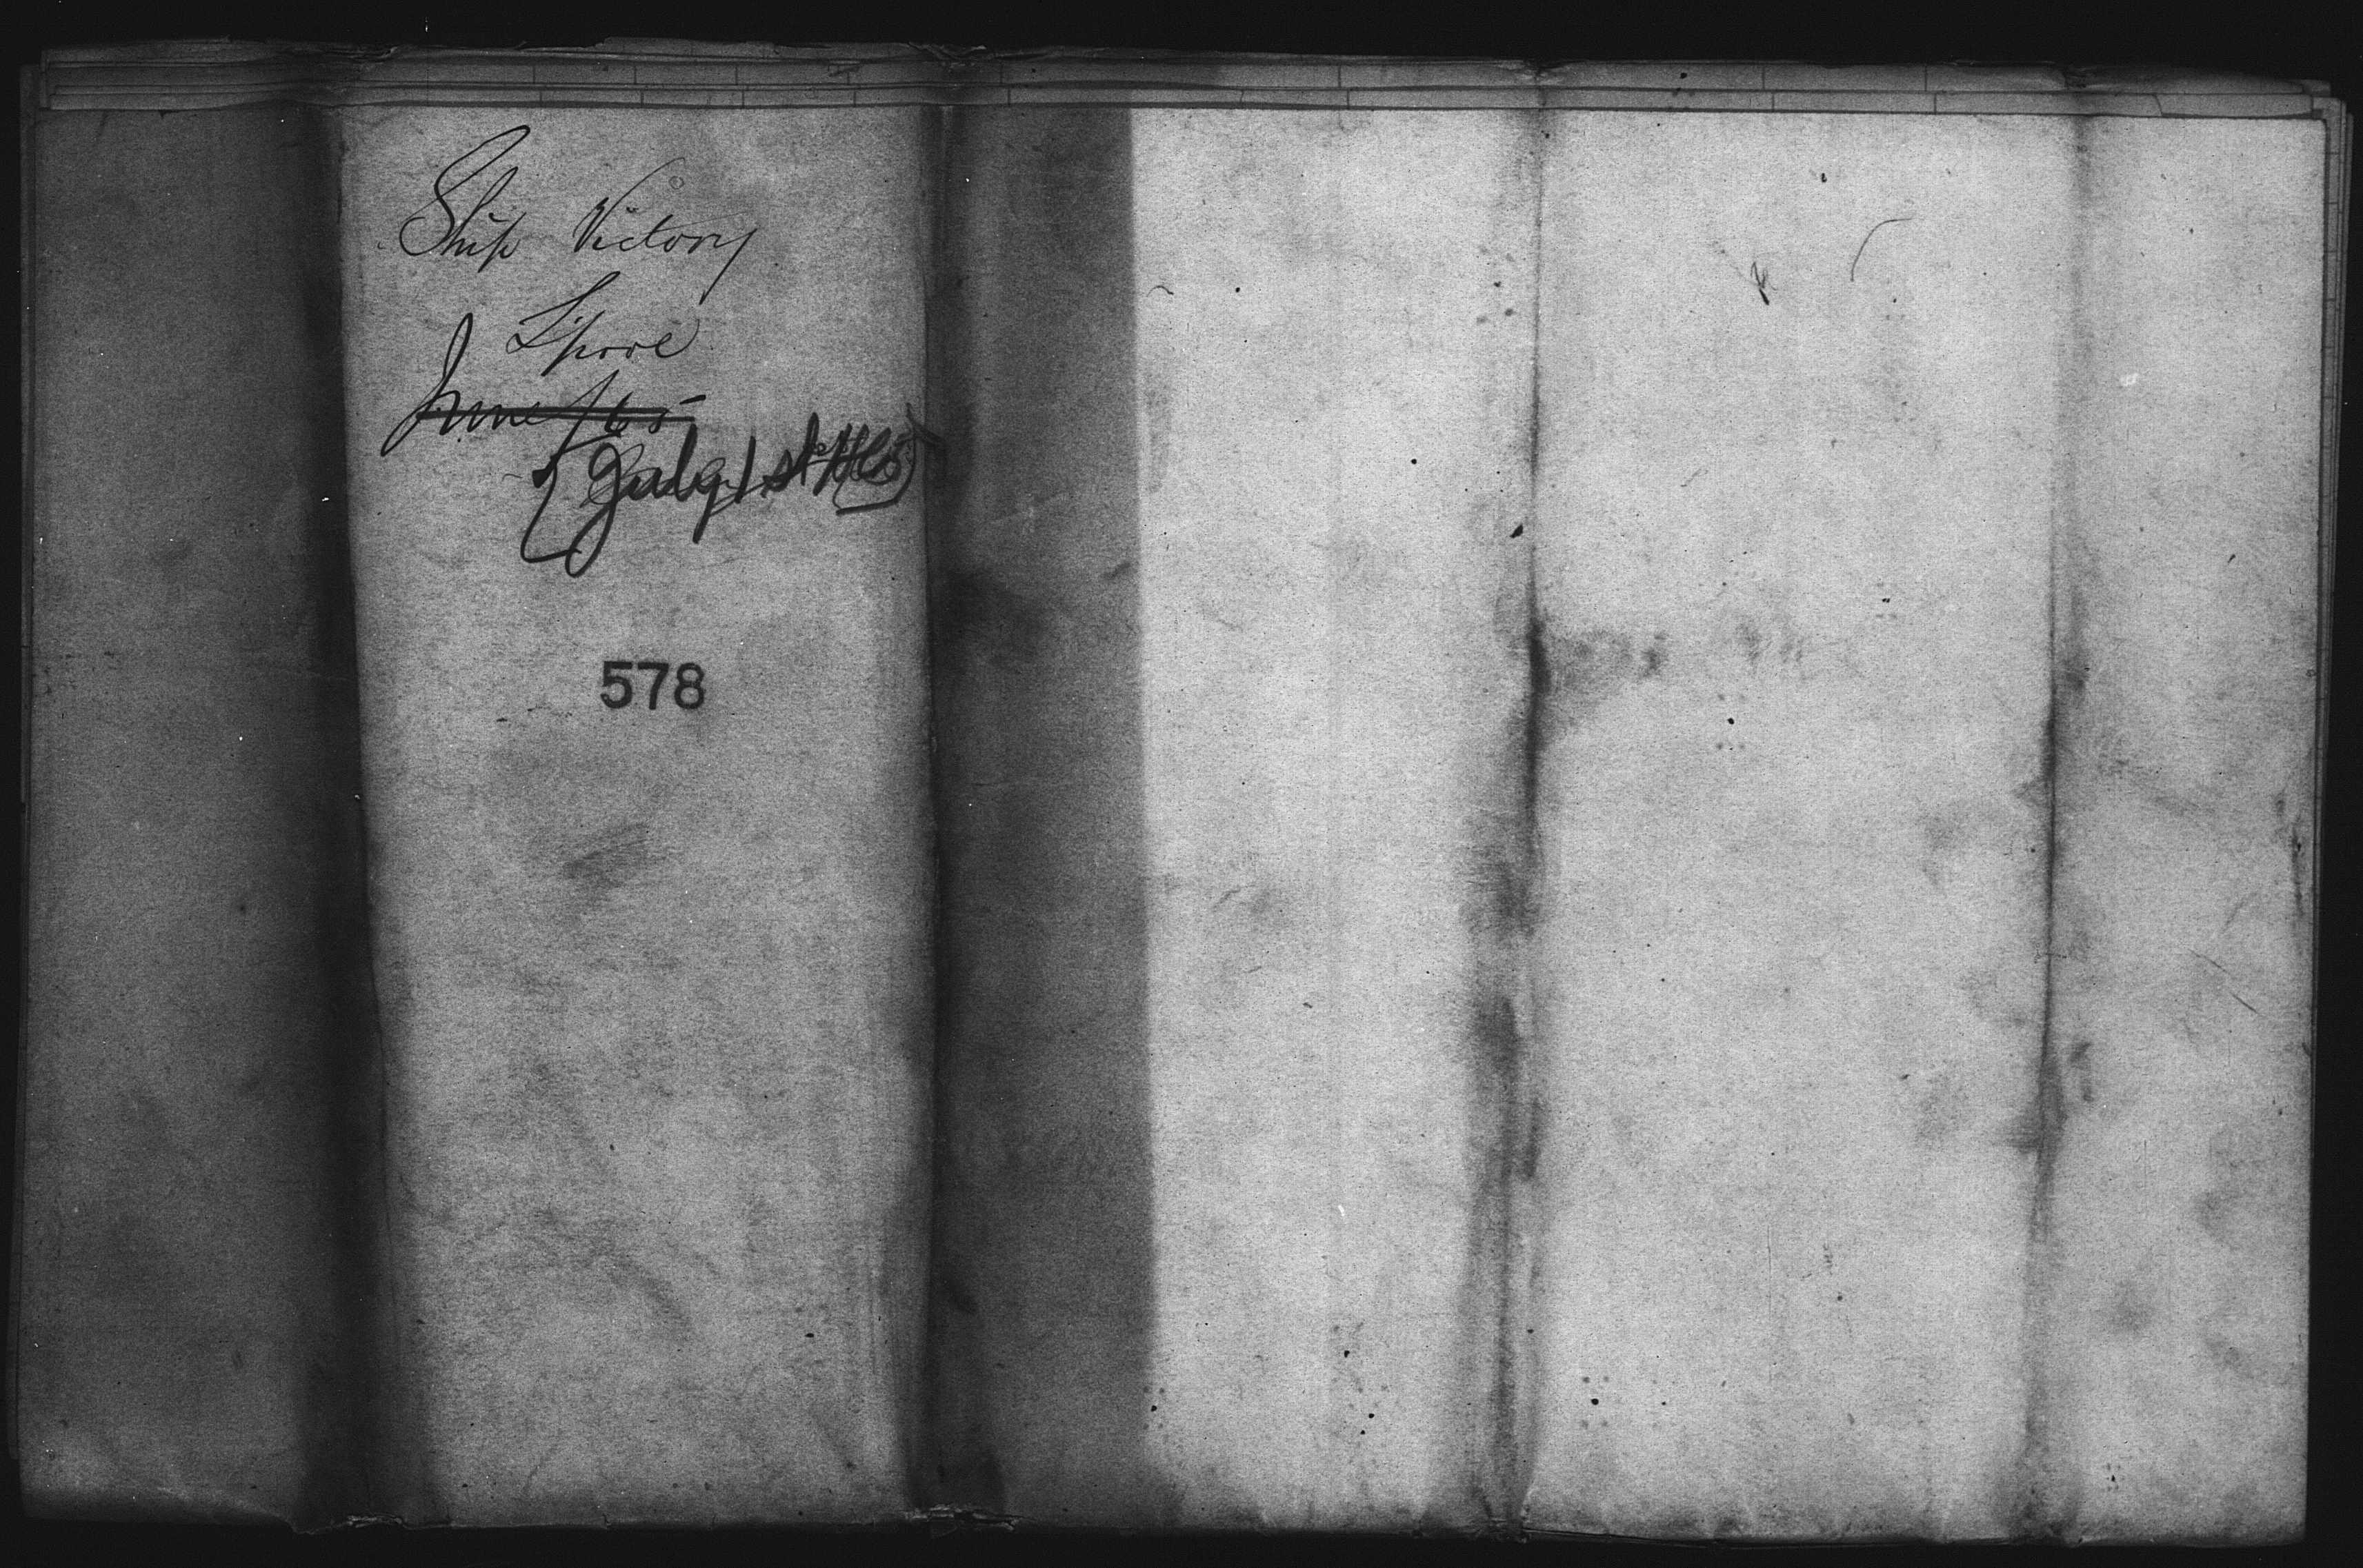 Ship Victory
L'pool
June /65
July 1st /65
578